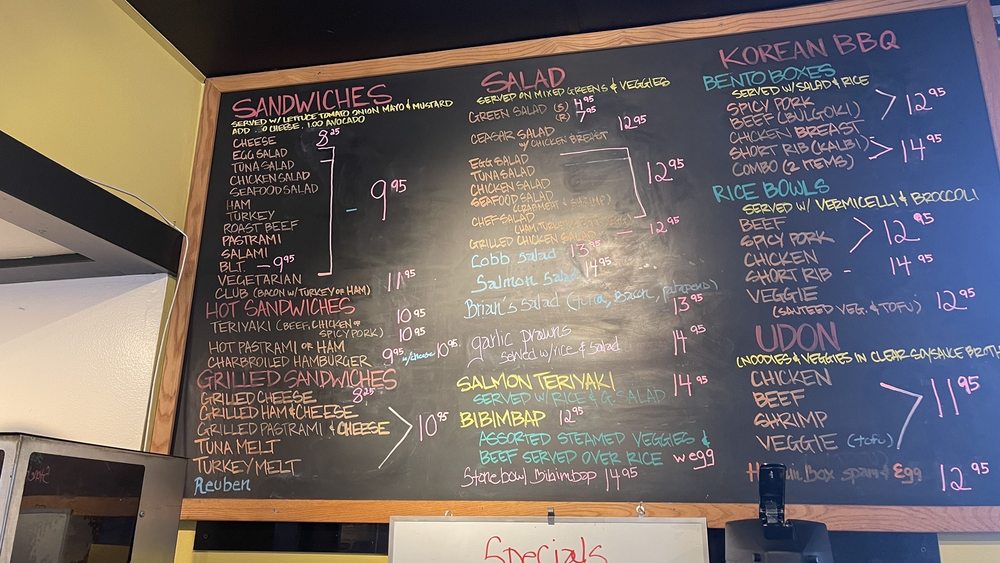 SANDWICHES
SERVED W/ LETTUCE TOMATO ONION MAYO & MUSTARD
ADD CHEESE, 1.00 AVOCADO
CHEESE 8.25
EGG SALAD
TUNA SALAD
CHICKEN SALAD
SEAFOOD SALAD
HAM
TURKEY
ROAST BEEF
PASTRAMI
SALAMI
- 9.95
BLT. - 9.95
VEGETARIAN
CLUB (BACON W/ TURKEY OR HAM) 11.95
HOT SANDWICHES
TERIYAKI (BEEF, CHICKEN OR SPICY PORK) 10.95
HOT PASTRAMI OR HAM 10.95
CHARBROILED HAMBURGER 9.95 w/cheese 10.95
GRILLED SANDWICHES
GRILLED CHEESE 8.25
GRILLED HAM & CHEESE
GRILLED PASTRAMI & CHEESE
TUNA MELT
TURKEY MELT
10.95
Reuben
SALAD
SERVED ON MIXED GREENS & VEGGIES
GREEN SALAD (S) 4.95
(R) 7.95
CEASAR SALAD 12.95
W/ CHICKEN BREAST
EGG SALAD
TUNA SALAD
CHICKEN SALAD
SEAFOOD SALAD
(CRABMEAT & SHRIMP)
CHEF SALAD
12.95
GRILLED CHICKEN SALAD - 12.95
Cobb salad 13.95
Salmon Salad 14.95
Brian's Salad (tuna, Bacon, jalapenos)
13.95
garlic prawns
served w/rice & salad 14.95
SALMON TERIYAKI
SERVED W/ RICE & G. SALAD 14.95
BIBIMBAP 12.95
ASSORTED STEAMED VEGGIES &
BEEF SERVED OVER RICE w egg
Stone bowl Bibimbap 14.95
KOREAN BBQ
BENTO BOXES
SERVED W/ SALAD & RICE
SPICY PORK
BEEF (BULGOKI)
CHICKEN BREAST
12.95
SHORT RIB (KALBI)
COMBO (2 ITEMS)
14.95
RICE BOWLS
SERVED W/ VERMICELLI & BROCCOLI
BEEF
SPICY PORK
CHICKEN
12.95
SHORT RIB - 14.95
VEGGIE
(SAUTEED VEG. & TOFU) 12.95
UDON
(NOODLES & VEGGIES IN CLEAR SOYSAUCE BROTH
CHICKEN
BEEF
SHRIMP
VEGGIE (tofu)
11.95
Box spam & Egg 12.95
Specials